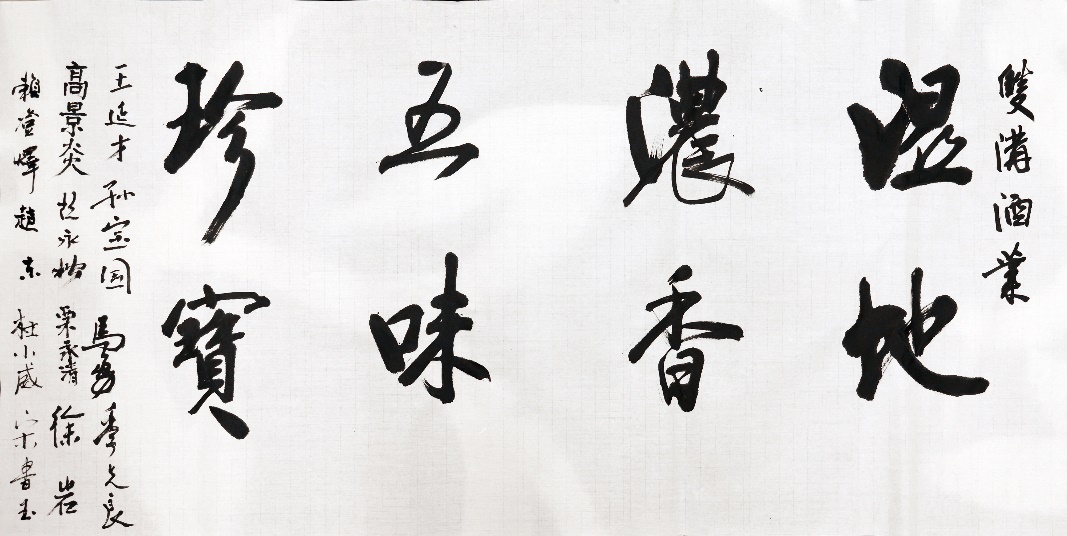 雙溝酒業
湿地
濃香
五味
珍寶
王延才 孙宝国 馬勇 季克良
高景炎 沈永?? 栗永清 徐岩
賴登燡 趙东 杜小威 宋書玉